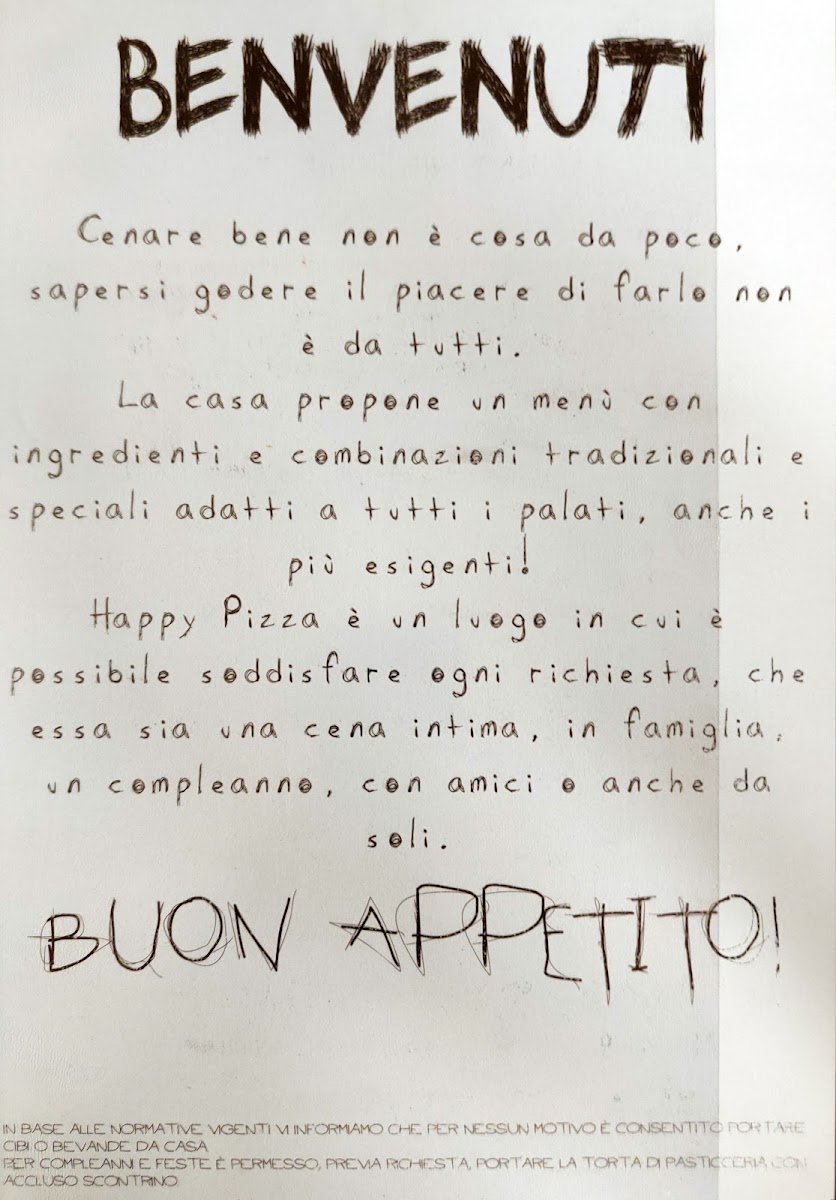 BENVENUTI
Cenare bene non è cosa da poco,
sapersi godere il piacere di farlo non
è da tutti.
La casa propone un menù con
ingredienti e combinazioni tradizionali e
speciali adatti a tutti i palati, anche i
più esigenti!
Happy Pizza è un luogo in cui è
possibile soddisfare ogni richiesta, che
essa sia una cena intima, in famiglia,
un compleanno, con amici o anche da
soli.
BUON APPETITO!
IN BASE ALLE NORMATIVE VIGENTI VI INFORMIAMO CHE PER NESSUN MOTIVO È CONSENTITO PORTARE
CIBI O BEVANDE DA CASA
PER COMPLEANNI E FESTE È PERMESSO, PREVIA RICHIESTA, PORTARE LA TORTA DI PASTICCERIA CON
ACCLUSO SCONTRINO